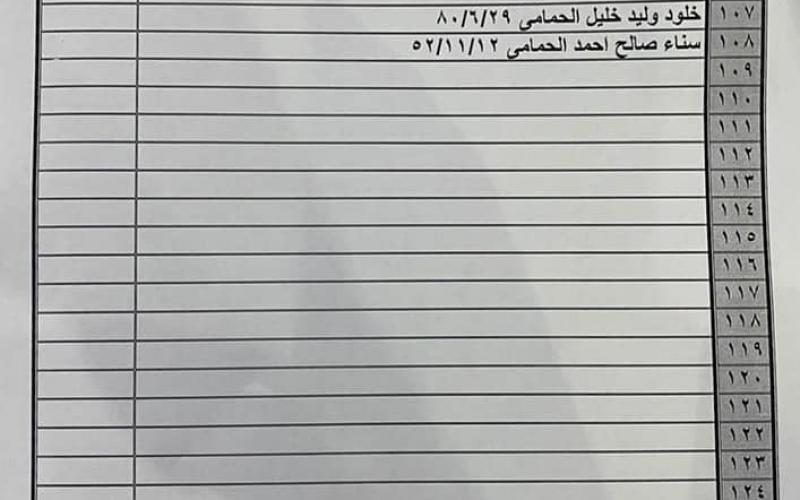 ١٠٧ خلود وليد خليل الحمامي ٨٠/٦/٢٩
١٠٨ سناء صالح احمد الحمامي ٥٢/١١/١٢
١٠٩
١١٠
١١١
١١٢
١١٣
١١٤
١١٥
١١٦
١١٧
١١٨
١١٩
١٢٠
١٢١
١٢٢
١٢٣
١٢٤